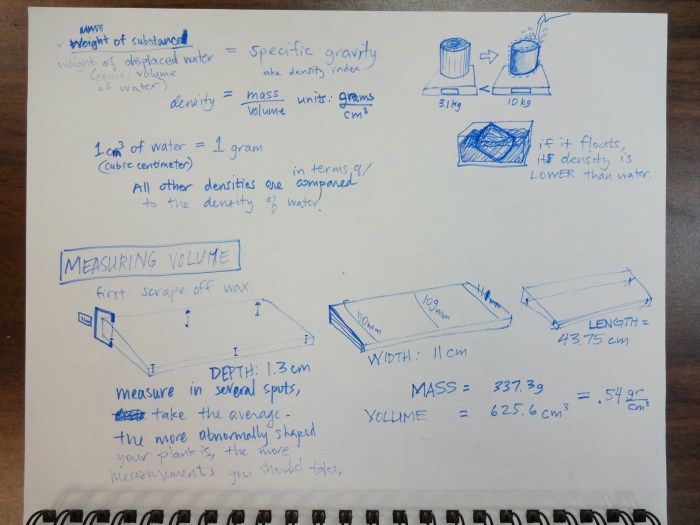 MASS
Weight of substance
weight of displaced water
(equiv. volume
of water)
= specific gravity
aka density index
density = mass
volume
units: grams
cm³
1 cm³ of water = 1 gram
(cubic centimeter)
in terms of/
All other densities are compared
to the density of water.
3.1 kg < 10 kg
if it floats,
its density is
LOWER than water.
MEASURING VOLUME
first: scrape off wax.
DEPTH: 1.3 cm
measure in several spots,
take the average.
the more abnormally shaped
your plank is, the more
measurements you should take.
110mm
109mm
WIDTH: 11 cm
LENGTH =
43.75 cm
MASS = 337.3g
VOLUME = 625.6 cm³
= .54 gr
cm³